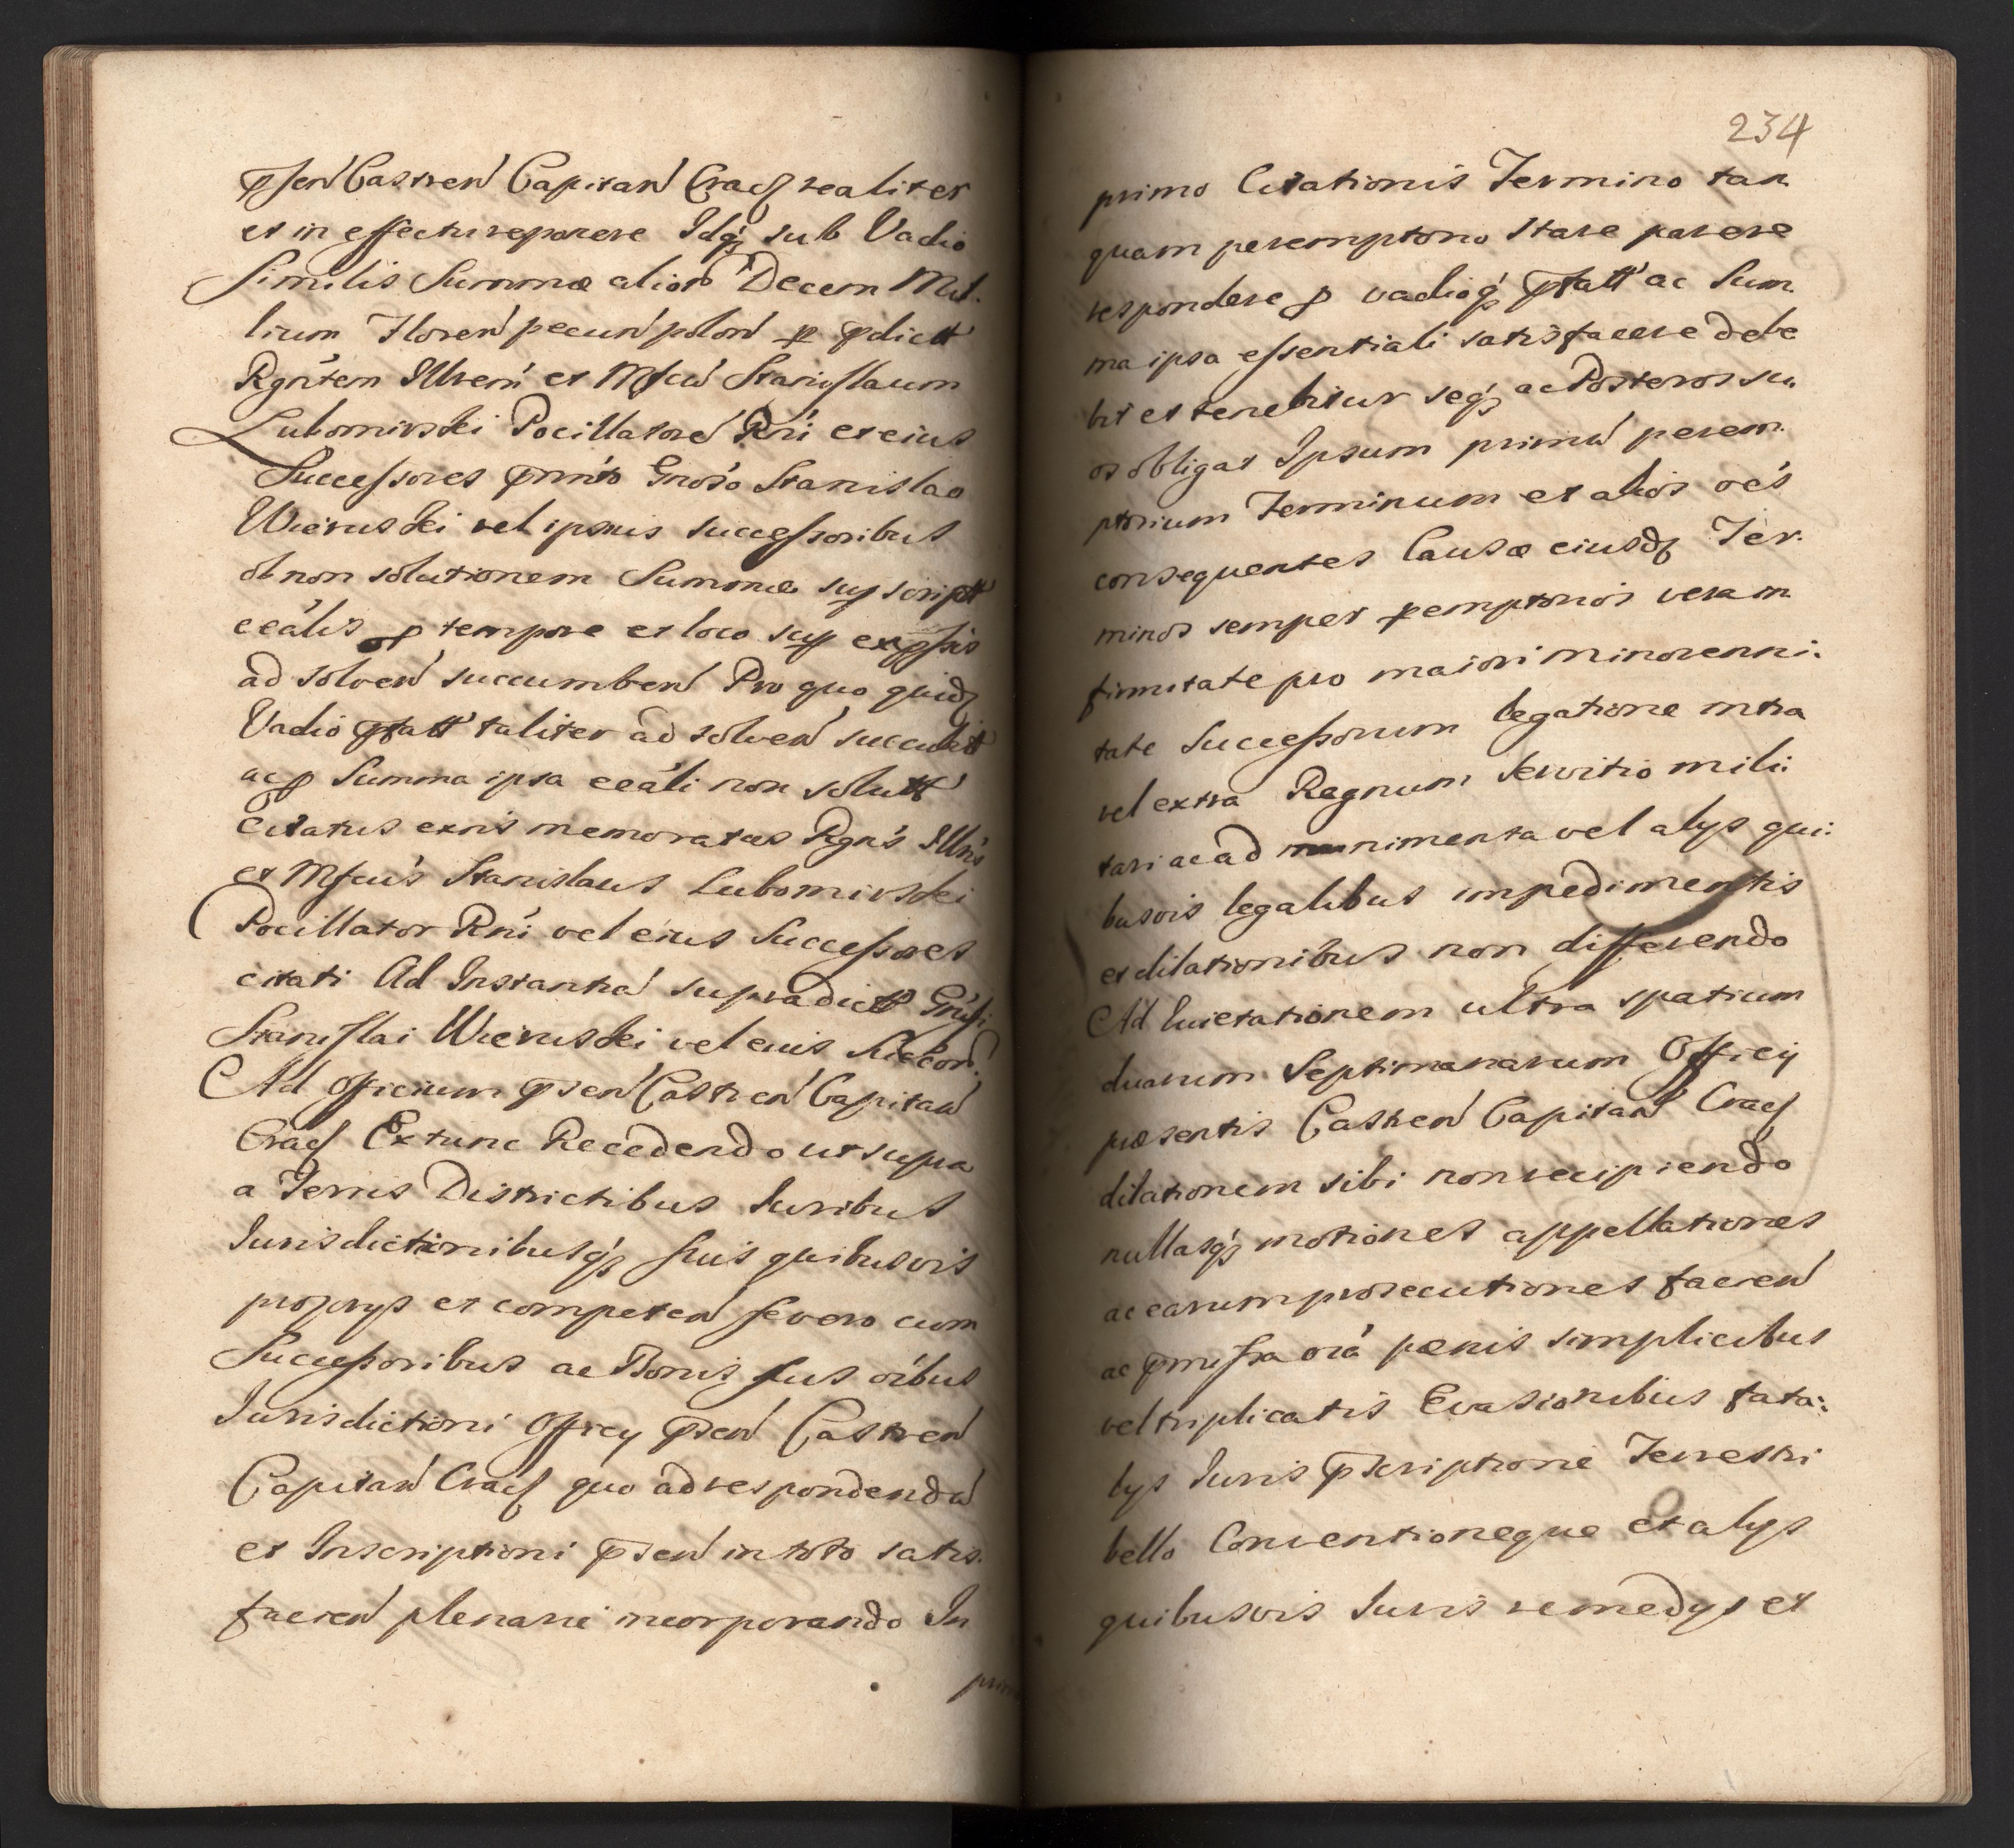 p̄sen Castren Capitan Crac realiter
et in effectu reponere Idq́; sub Vadio
Similis Summæ alior Decem Mil.
lium Floren pecun polon per p̄dictt
Rgńtem Illrem et Mfcu Stanislaum
Lubomirski Pocillatore Rńi et eius
Successores p̄mńto Gńoso Stanislao
Wieruski vel ipsius successoribus
ob non solutionem Summæ sup scriptt
ceális p̄ tempore et loco sup exp̄ssis
ad solven succumben Pro quo quidȝ
Vadio p̄fatt taliter ad solven succubitt
ac p̄ Summa ipsa ceáli non solutt
Citatus exńs memoratus Rgńs Illris
et Mfcus Stanislaus Lubomirski
Pocillator Rńi vel eius Successores
citati Ad Instantia supradictt Gńosi
Stanislai Wieruski vel euis Succor
Ad Officium p̄sen Castren Capitan
Crac Extunc Recedendo ut supra
a Terris Districtibus Iuribus
Iurisdictionibusq́; suis quibusvis
proprys et competen severo cum
Successoribus ac Bonis suis oíbus
Iurisdictioni Officy p̄sen Castren
Capitan Crac quo ad respondendu
et Inscriptioni p̄sen in toto satis.
facien plenarie incorporando In
234
primo Citationis Termino tan
quam peremptorio Stare parere
respondere p̄ vadioq́; p̄fatt ac Sum
ma ipsa essentiali satisfacere debe
bit et tenebitur seq́; ac Posteros su
os obligat Ipsum primu perem.
ptorium Terminum et alios oés
consequentes Causæ eiusdȝ Ter.
minos semper peremptorios veram
firmitate pro maiori minorenni.
tate Successorum legatione intra
vel extra Regnum Servitio mili:
tari ac ad munimenta vel alys qui:
busvis legalibus impedimentis
et dilationibus non differendo
Ad Quietationem ultra spatium
duarum Septimanarum Officy
præsentis Castren Capitan Crac
dilationem sibi non recipiendo
nullasq́; motiones appellationes
ac earum prosecutiones facien
ac p̄missa oía pænis simplicibus
vel triplicatis Evasionibus fata:
lys Iuris p̄scriptione Terrestri
bello Conventioneque et alys
quibusvis Iuris remedys et